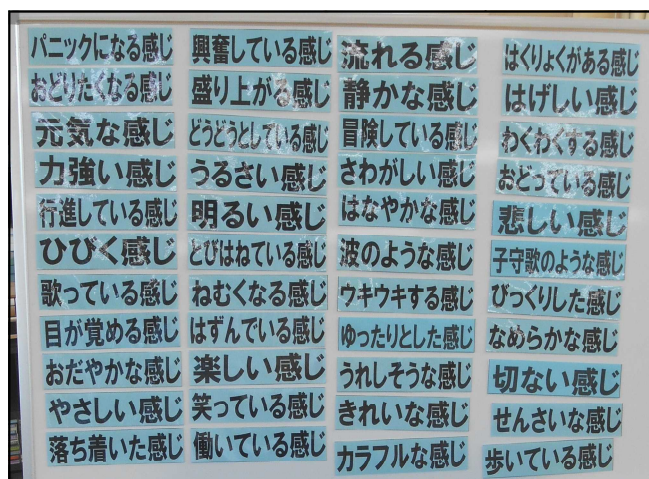 パニックになる感じ
おどりたくなる感じ
元気な感じ
力強い感じ
行進している感じ
ひびく感じ
歌っている感じ
目が覚める感じ
おだやかな感じ
やさしい感じ
落ち着いた感じ
興奮している感じ
盛り上がる感じ
どうどうとしている感じ
うるさい感じ
明るい感じ
とびはねている感じ
ねむくなる感じ
はずんでいる感じ
楽しい感じ
笑っている感じ
働いている感じ
流れる感じ
静かな感じ
冒険している感じ
さわがしい感じ
はなやかな感じ
波のような感じ
ウキウキする感じ
ゆったりとした感じ
うれしそうな感じ
きれいな感じ
カラフルな感じ
はくりょくがある感じ
はげしい感じ
わくわくする感じ
おどっている感じ
悲しい感じ
子守歌のような感じ
びっくりした感じ
なめらかな感じ
切ない感じ
せんさいな感じ
歩いている感じ